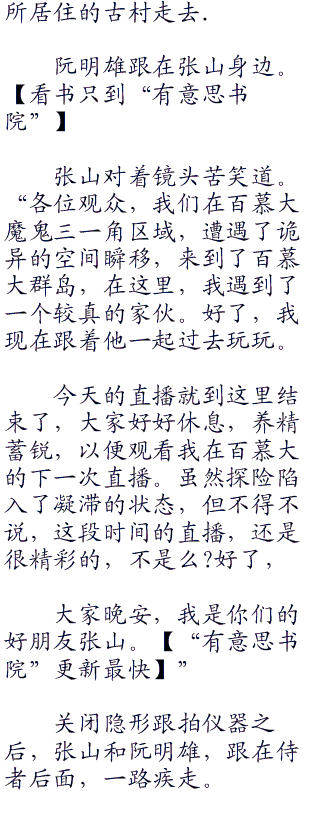 所居住的古村走去.
阮明雄跟在张山身边。
【看书只到“有意思书
院”】
张山对着镜头苦笑道。
“各位观众，我们在百慕大
魔鬼三一角区域，遭遇了诡
异的空间瞬移，来到了百慕
大群岛，在这里，我遇到了
一个较真的家伙。好了，我
现在跟着他一起过去玩玩。
今天的直播就到这里结
束了，大家好好休息，养精
蓄锐，以便观看我在百慕大
的下一次直播。虽然探险陷
入了凝滞的状态，但不得不
说，这段时间的直播，还是
很精彩的，不是么?好了，
大家晚安，我是你们的
好朋友张山。【“有意思书
院”更新最快】”
关闭隐形跟拍仪器之
后，张山和阮明雄，跟在侍
者后面，一路疾走。